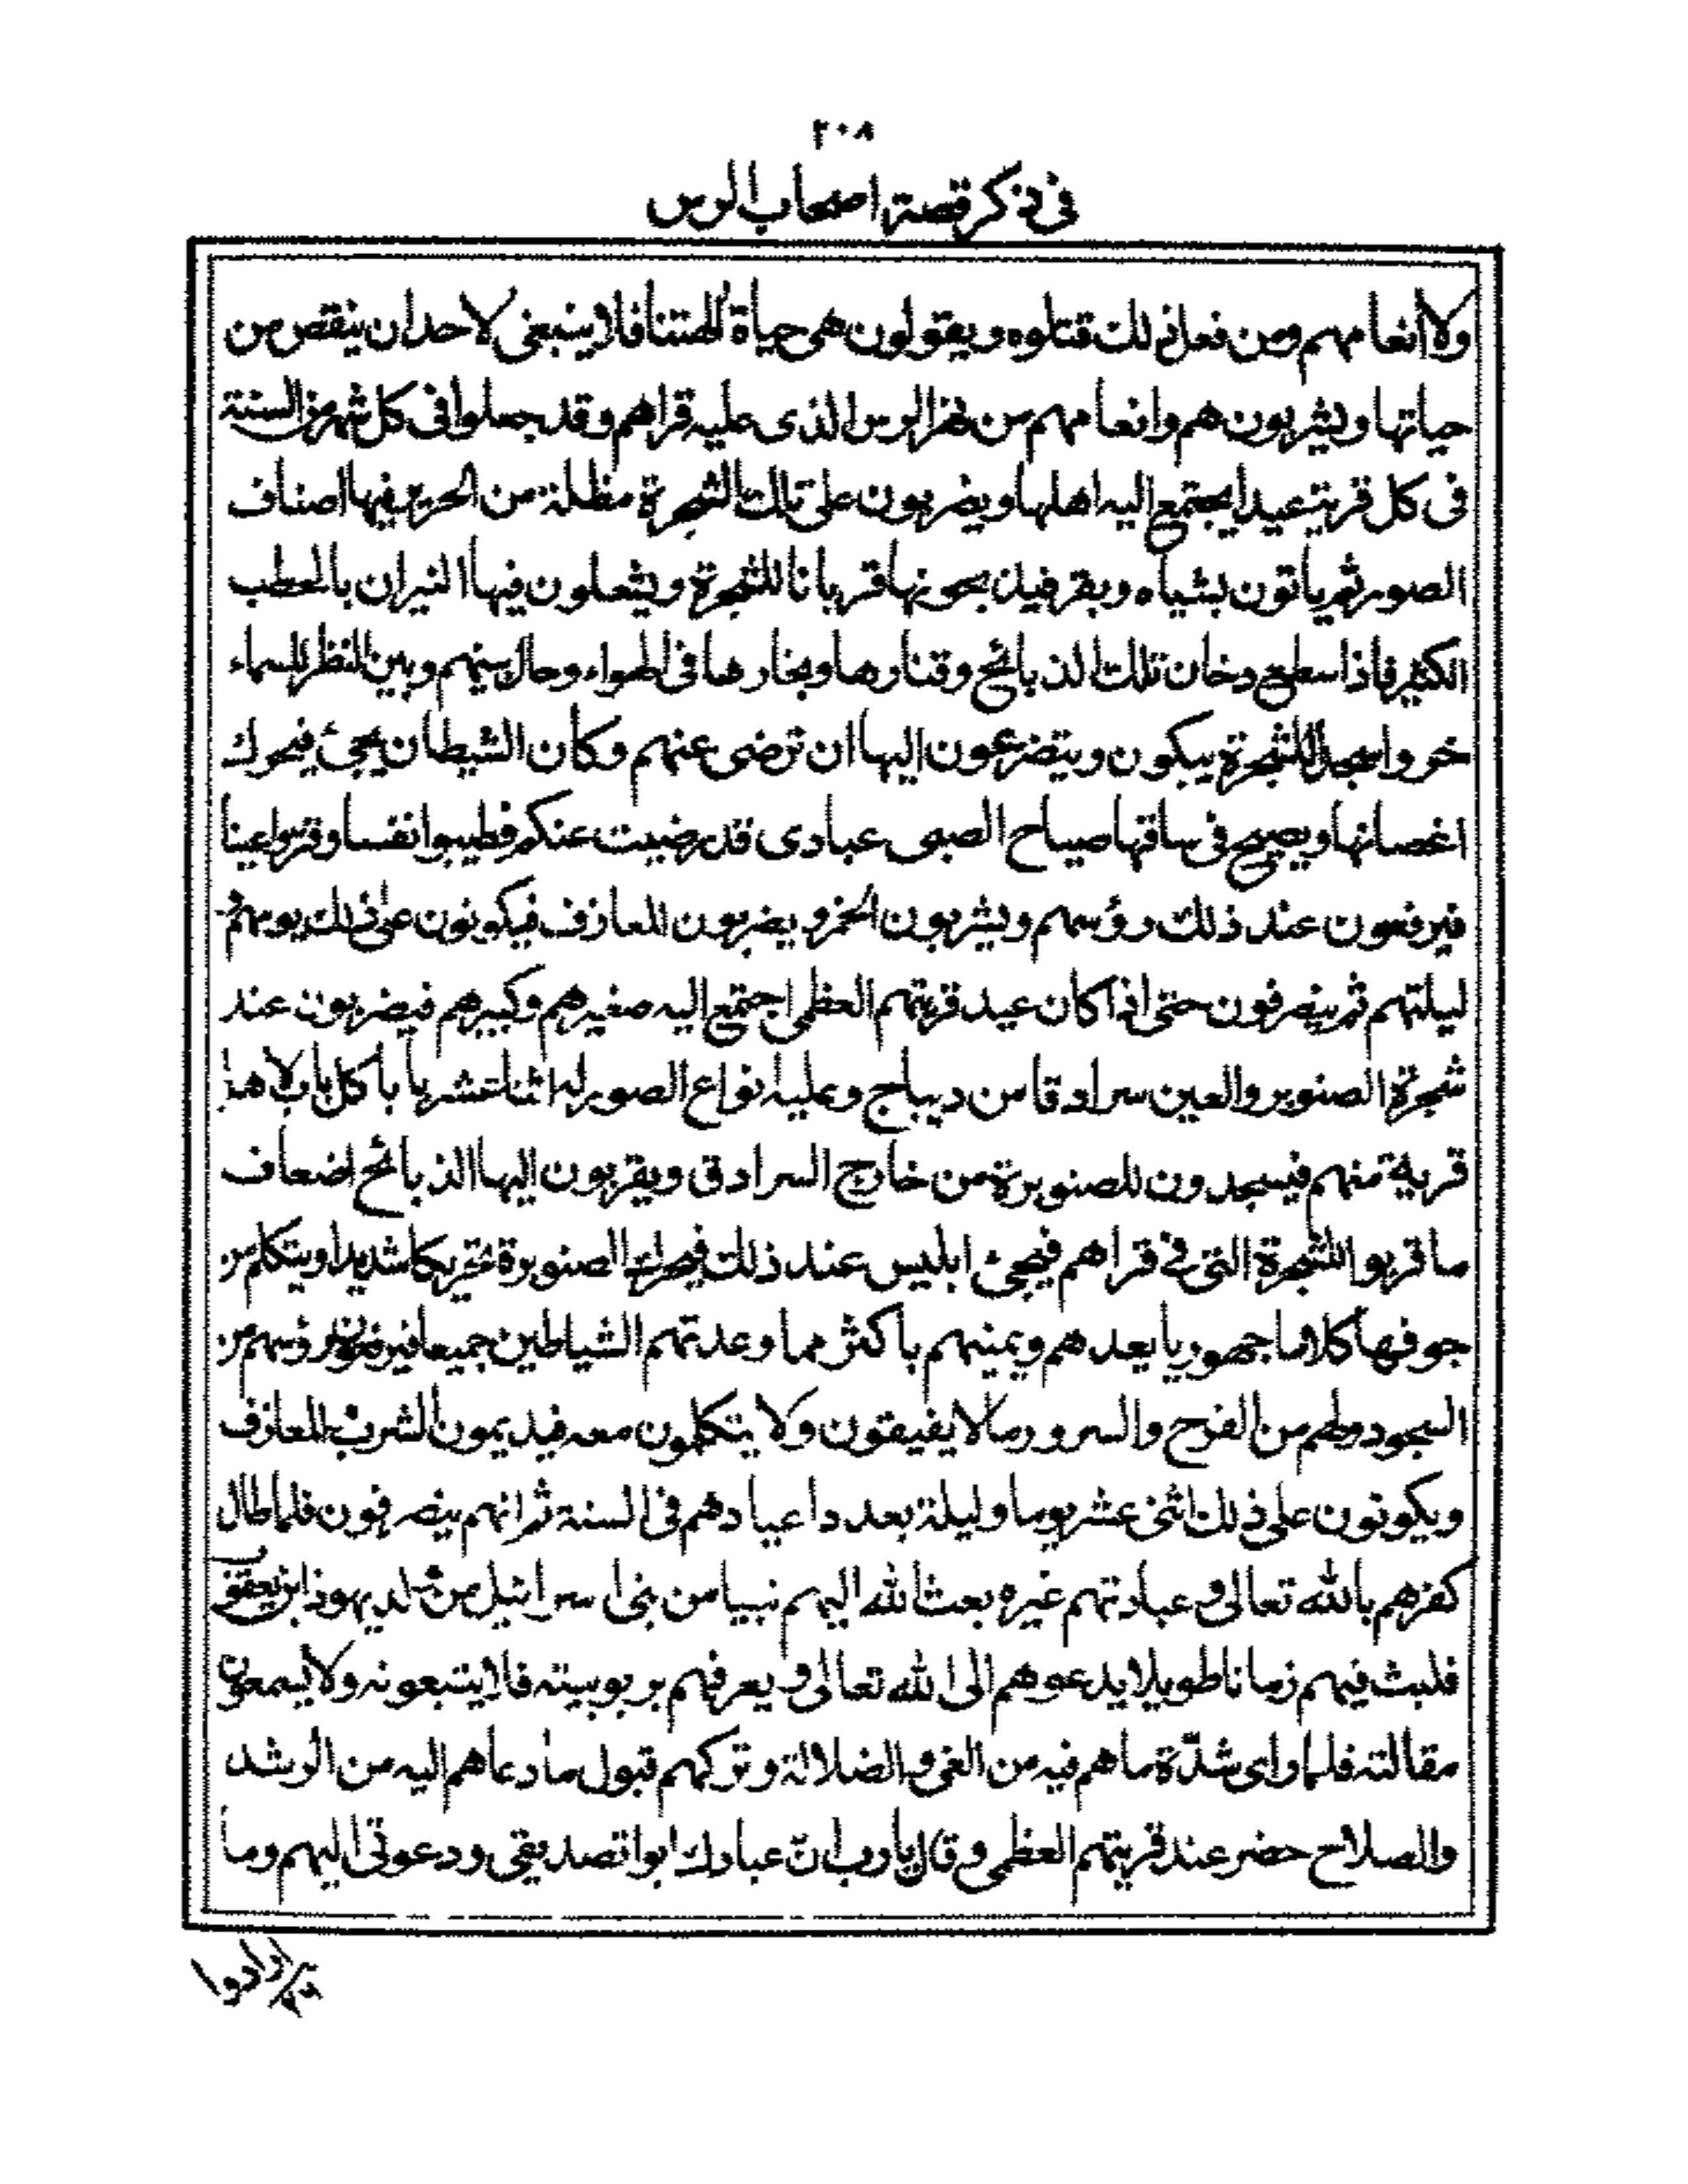 ٢٠٨
فى ذكر قصة اصحاب الرس
ولا أنعامهم ومن فعل ذلك قتلوه ويقولون هى حياة الهتنا فلا ينبغى لاحد ان ينقص من
حياتها ويشربون هم وانعامهم من نهر الرس الذى عليه قراهم وقد جعلوا فى كل شهر من السنة
فى كل قرية عيدا يجتمع اليه اهلها ويضربون على تلك الشجرة مظلة من الحرير فيها اصناف
الصور ثم ياتون بشياه وبقر فيذبحونها قربانا للشجرة ويشعلون فيها النيران بالحطب
الكثير فاذا سطع دخان تلك الذبائح وقتارها وبخارها فى الهواء وحال بينهم وبين النظر للسماء
خروا سجدا للشجرة يبكون ويتضرعون اليها ان ترضى عنهم وكان الشيطان يجئ فيحرك
اغصانها ويصيح فى ساقها صياح الصبى عبادى قد رضيت عنكم فطيبوا نفسا وقروا عينا
فيرفعون عند ذلك رؤسهم ويشربون الخمر ويضربون المعازف فيكونون على ذلك يومهم و
ليلتهم ثم ينصرفون حتى اذا كان عيد قريتهم العظمى اجتمع اليه صغيرهم وكبيرهم فيضربون عند
شجرة الصنوبر والعين سرادقا من ديباج وعليه انواع الصور له اثنا عشر بابا كل باب لاهل
قرية منهم فيسجدون للصنوبرة من خارج السرادق ويقربون اليها الذبائح اضعاف
ما قربوا للشجرة التى فى قراهم فيجئ ابليس عند ذلك فيحرك الصنوبرة تحريكا شديدا ويتكلم من
جوفها كلاما جهوريا يعدهم ويمنيهم باكثر مما وعدتهم الشياطين جميعا فيرفعون رؤسهم من
السجود ولهم من الفرح والسرور ما لا يفيقون ولا يتكلمون معه فيديمون الشرب والمعازف
ويكونون على ذلك اثنى عشر يوما وليلة بعدد اعيادهم فى السنة ثم انهم ينصرفون فلما طال
كفرهم بالله تعالى وعبادتهم غيره بعث الله اليهم نبيا من بنى اسرائيل من ولد يهوذا بن يعقوب
فلبث فيهم زمانا طويلا يدعوهم الى الله تعالى ويعرفهم بربوبيته فلا يتبعونه ولا يسمعون
مقالته فلما راى شدّة ما هم فيه من الغى والضلالة وتركهم قبول ما دعاهم اليه من الرشد
والصلاح حضر عند قريتهم العظمى وقال يا رب انّ عبادك ابوا تصديقى ودعوتى اليهم وما
ارادوا